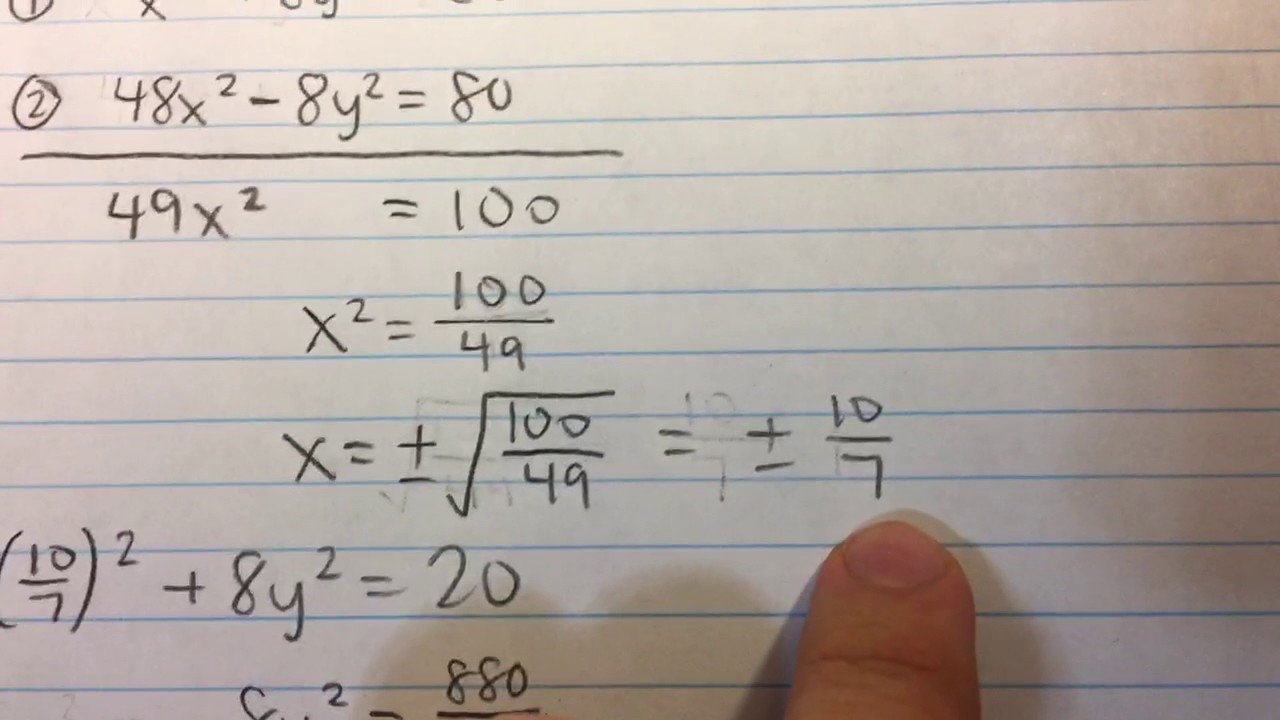 ② 48x² - 8y² = 80
49x² = 100
x² = 100/49
x = ± √(100/49) = ± 10/7
(10/7)² + 8y² = 20
880